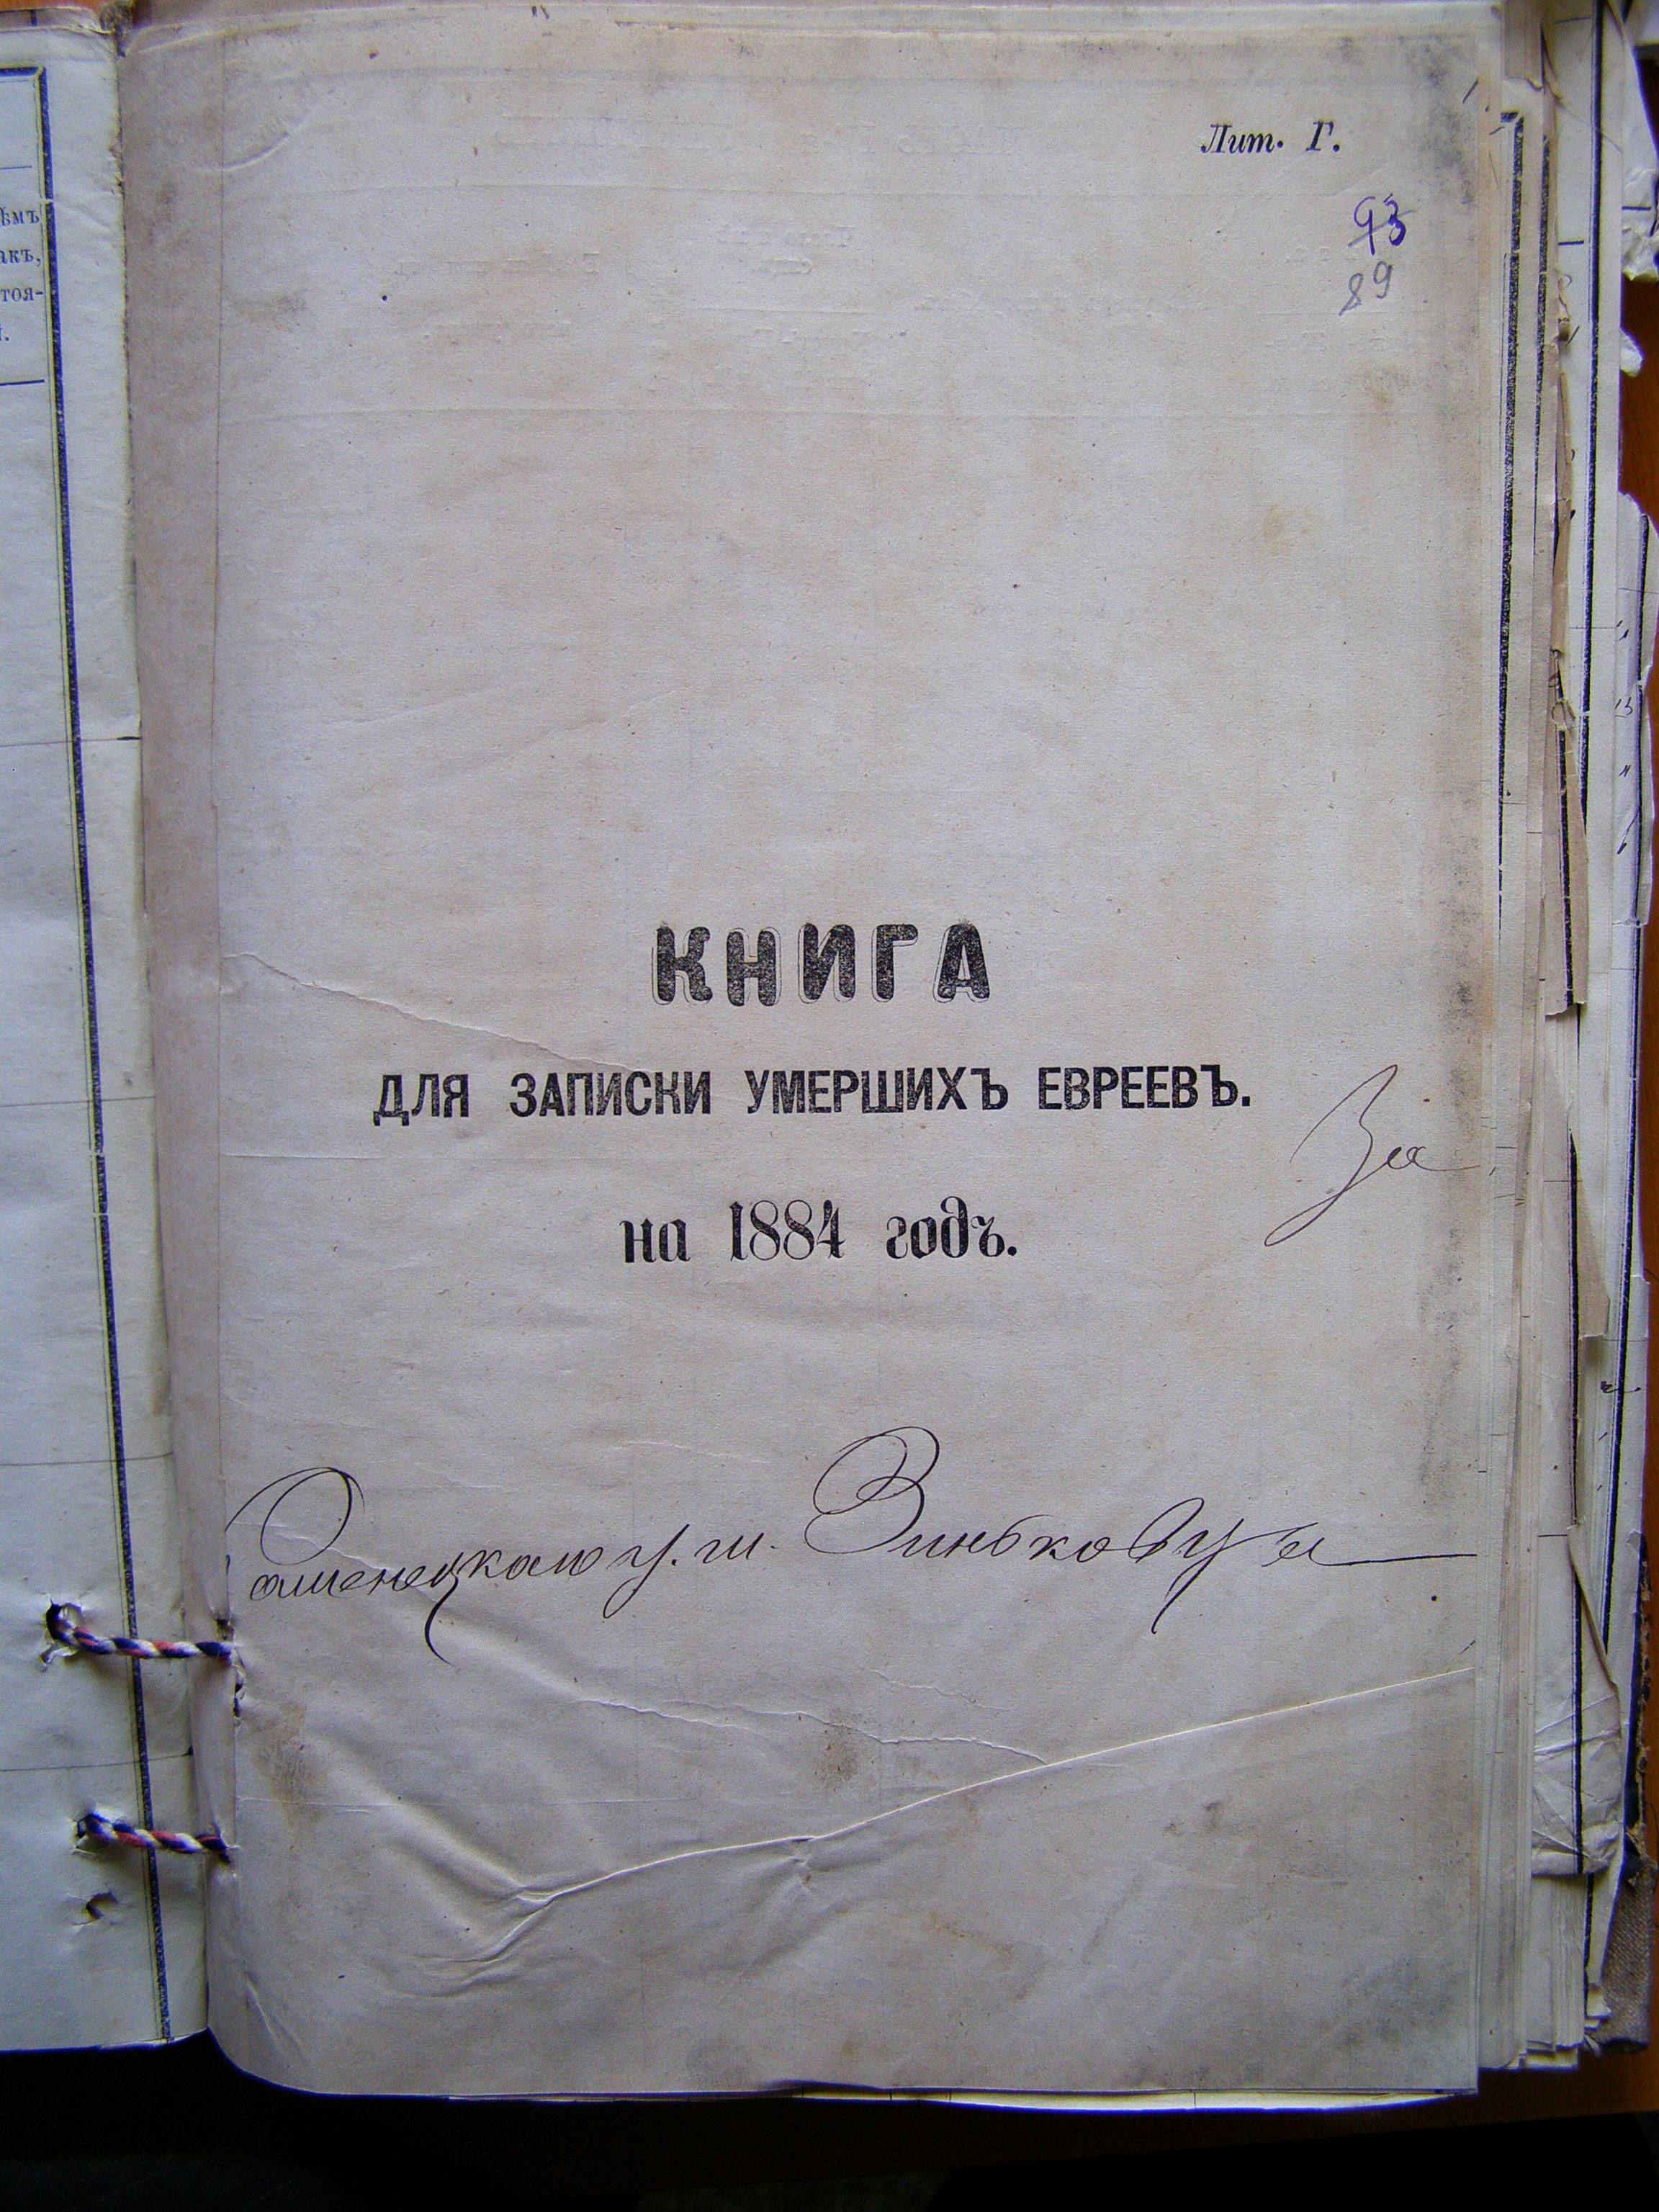 ѣмъ
акъ,
тоя-
Лит. Г.
93
89
КНИГА
ДЛЯ ЗАПИСКИ УМЕРШИХЪ ЕВРЕЕВЪ.
За
на 1884 годъ.
Каменецкаго у. м. Зиньковцы